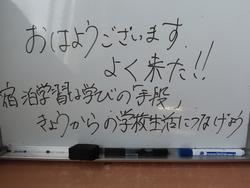 おはようございます.
よく来た!!
宿泊学習は学びの「手段」
きょうからの学校生活につなげよう